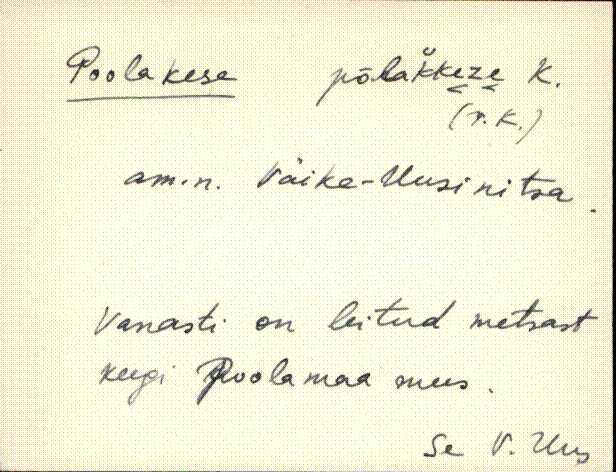 Poolakese põlăkkeze K.
(r.K.)
am.n. Väike-Uusinitsa.
Vanasti on leitud metsast
keegi Poolamaa mees.
Se V. Uus